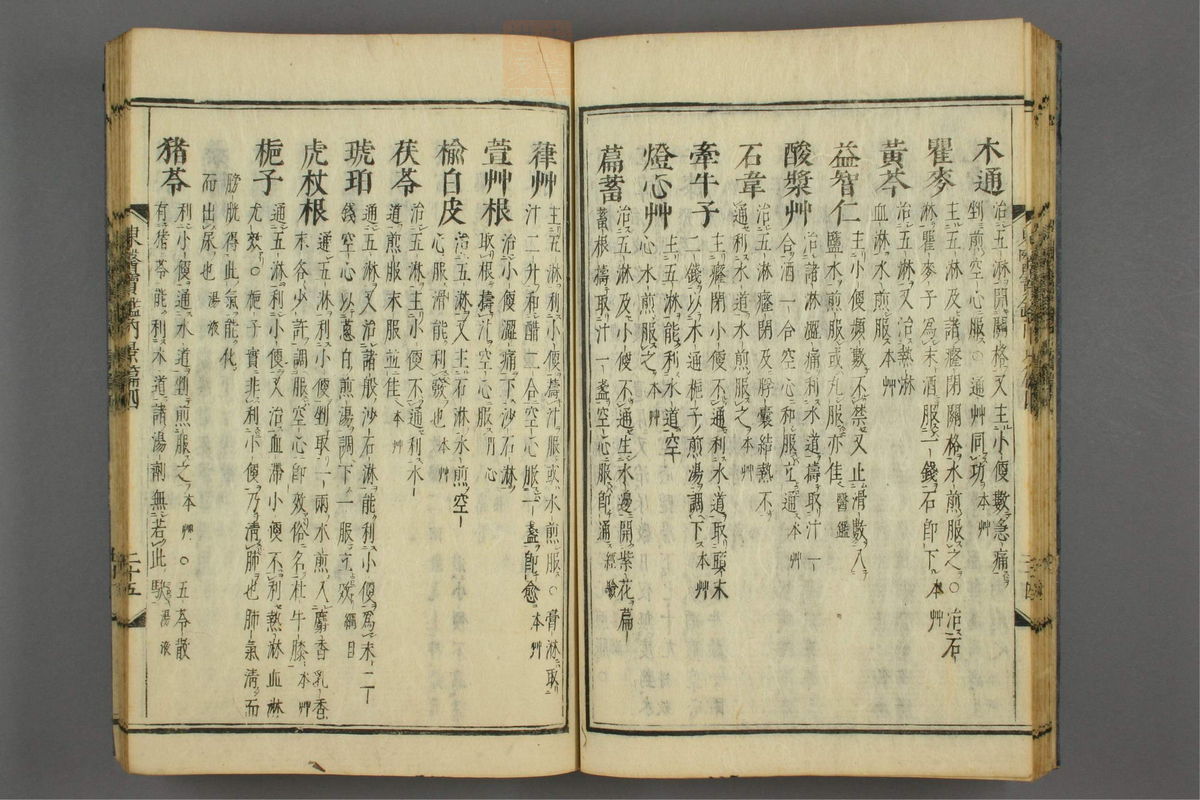 木通
治五淋開關格又主小便數急痛
剉煎空心服○通艸同功本艸
瞿麥
主五淋及諸癃閉關格水煎服之○治石
淋瞿麥子爲末酒服一錢石即下本艸
黃芩
治五淋又治熱淋
血淋水煎服本艸
益智仁
主小便頻數不禁又止滑數入
鹽水煎服或丸服亦佳醫鑑
酸漿艸
治諸淋澀痛利水道擣取汁一
合酒一合空心和服立通本艸
石韋
治五淋癃閉及脬囊結熱不
通利水道水煎服之本艸
牽牛子
主癃閉小便不通利水道取頭末
二錢以木通梔子煎湯調下本艸
燈心艸
主五淋能利水道空
心水煎服之本艸
萹蓄
治五淋及小便不通生水邊開紫花萹
蓄根擣取汁一盞空心服即通經驗
葎艸
主五淋利小便擣汁服或水煎服○膏淋取
汁二升和醋二合空心服一盞即愈本艸
萱艸根
治小便澀痛下沙石淋
取根擣汁空心服門心
楡白皮
治五淋又主石淋水煎空
心服滑能利竅也本艸
茯苓
治五淋主小便不通利水
道煎服末服並佳本艸
琥珀
通五淋又治諸般沙石淋能利小便爲末二
錢空心以葱白煎湯調下服立效綱目
虎杖根
通五淋利小便剉取一兩水煎入麝香乳香
末各少許調服空心卽效俗名杜牛膝本艸
梔子
通五淋利小便又治血滯小便不利熱淋血淋
尤效○梔子實非利小便乃淸肺也肺氣淸而
膀胱得此氣能化
而出尿也湯液
猪苓
利小便通水道剉煎服之本艸○五苓散
有猪苓能利水道諸湯劑無若此駃湯液
東醫寶鑑內景篇四
二十五